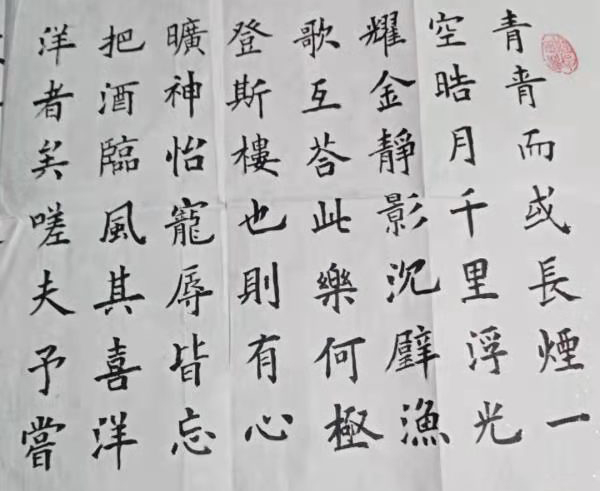 青青而或長煙一
空晧月千里浮光
耀金靜影沉璧漁
歌互荅此樂何極
登斯樓也則有心
曠神怡寵辱皆忘
把酒臨風其喜洋
洋者矣嗟夫予嘗